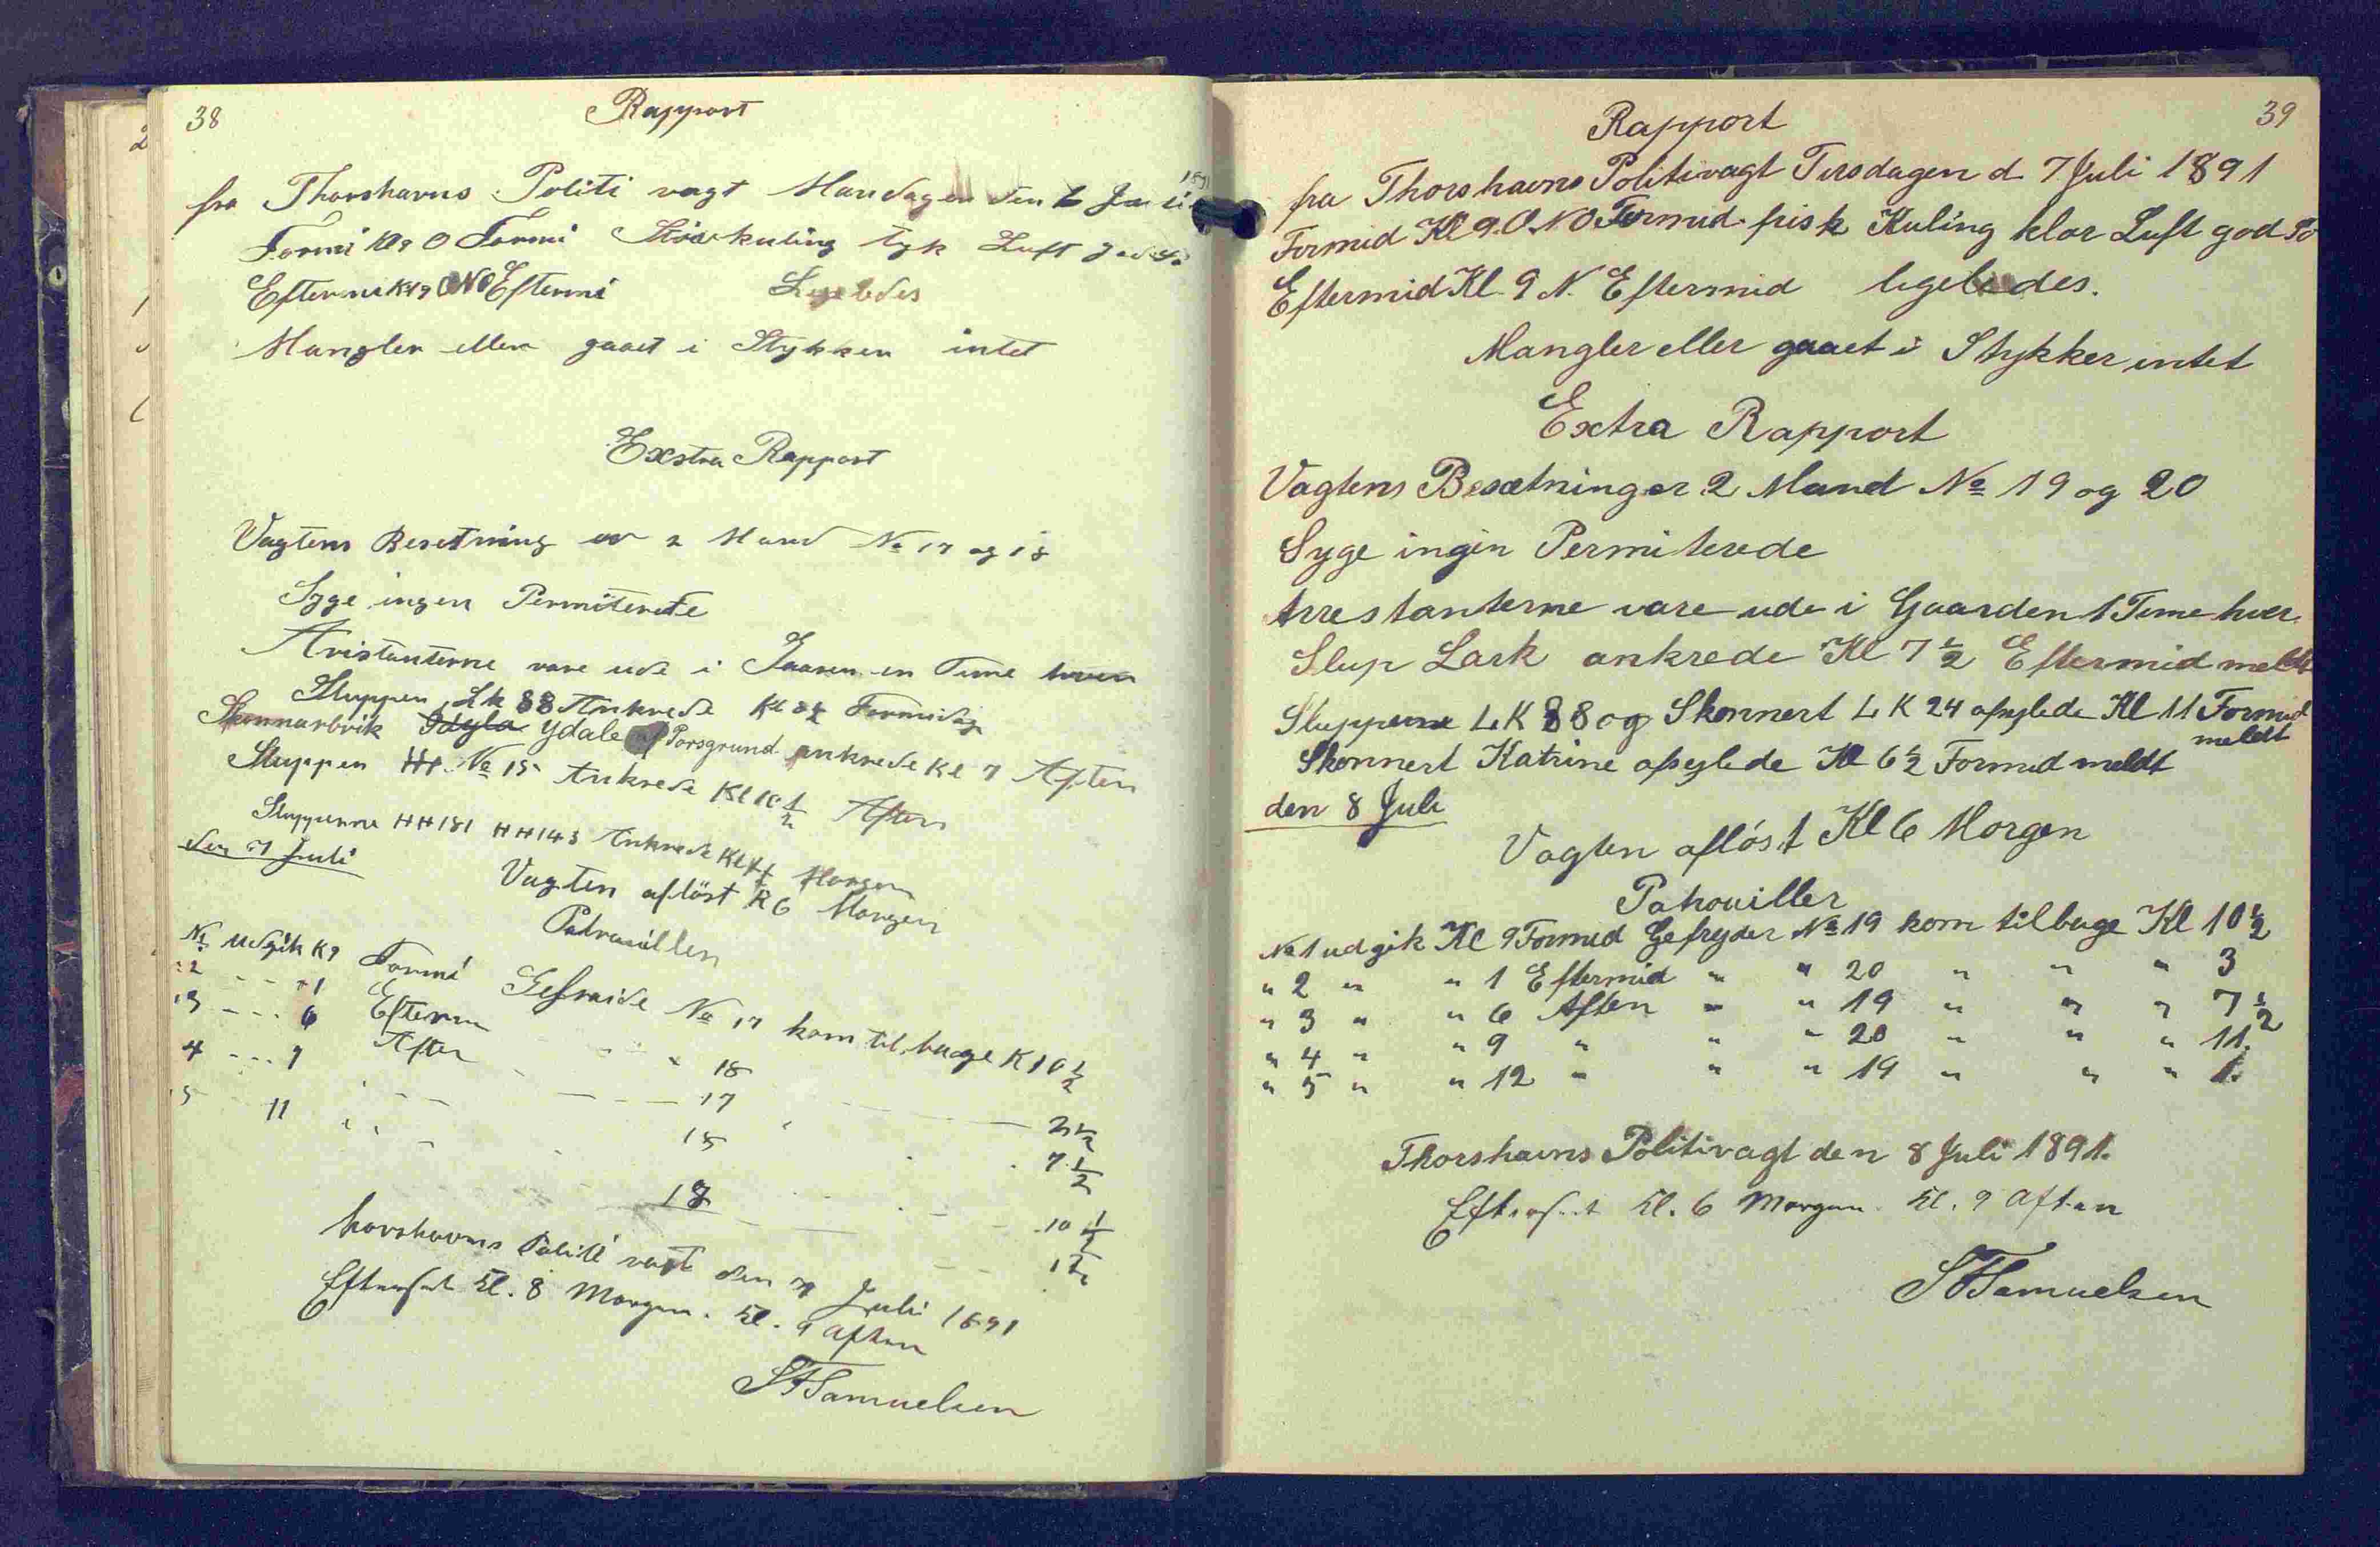 38
Rapport
fra Thorshavns Politi vagt Mandagen den 6 Juli 1891
Formi Kl 9 O Formi Stivkuling tyk Luft god
Eftermi Kl 9 ONO Eftermi Ligeledes
Mangler eller gaaet i Stykker intet
Exstra Rapport
Vagtens Besetning er 2 Mand No 17 og 18
Syge ingen Permiterete
Aristanterne vare ude i Gaaren en Time hver
Sluppen Lk 88 Ankrede Kl 8½ Formidag
Skonnarbrik Idyla Ydale af Porsgrund ankrede Kl 7 Aften
Sluppen HH No 15 Ankrede Kl 10 1/2 Aften
Slupperne HH 181 HH 143 Ankrede Kl Morgen
den 7 Juli
Vagten aflöst K 6 Morgen
Patrouiller
No 1 udgik K 9 Formi Gefreide No 17 kom tilbage K 10 1/2
2 - - 1 Efterm - - 18 - - 2 1/2
3 - - - 6 Aften - - 17 - - 7 1/2
4 - - - 9 - - 18 - - 10 1/2
5 - 11 - - 18 - - 12
horshavns Politi vagt den 7 Juli 1891
Efterset Kl. 8 Morgen. Kl. 9 Aften
Samuelsen
39
Rapport
fra Thorshavns Politivagt Tirsdagen d 7 Juli 1891
Formid Kl 9. O.N.O Formid frisk Kuling klar Luft god
Eftermid Kl. 9 N. Eftermid ligeledes.
Mangler eller gaaet i Stykker intet
Extra Rapport
Vagtens Besætning er 2 Mand No 19 og 20
Syge ingen Permiterede
Arrestanterne vare ude i Gaarden 1 Time hver.
Slup Lark ankrede Kl 7 1/2 Eftermid meldt
Slupperne LK 88 og Skonnert LK 24 afseglede Kl 11 Formid
meldt
Skonnert Katrine afseglede Kl 6 1/2 Formid meldt
den 8 Juli
Vagten aflöst Kl 6 Morgen
Patrouiller
No 1 udgik Kl 9 Formid Gefryder No 19 kom tilbage Kl 10 1/2
" 2 " " 1 Eftermid " " 20 " " " 3
" 3 " " 6 Aften " " 19 " " " 7 1/2
" 4 " " 9 " " " 20 " " " 11.
" 5 " " 12 " " " 19 " " " 1.
Thorshavns Politivagt den 8 Juli 1891.
Efterset Kl. 6 Morgen. Kl. 9 Aften
Samuelsen